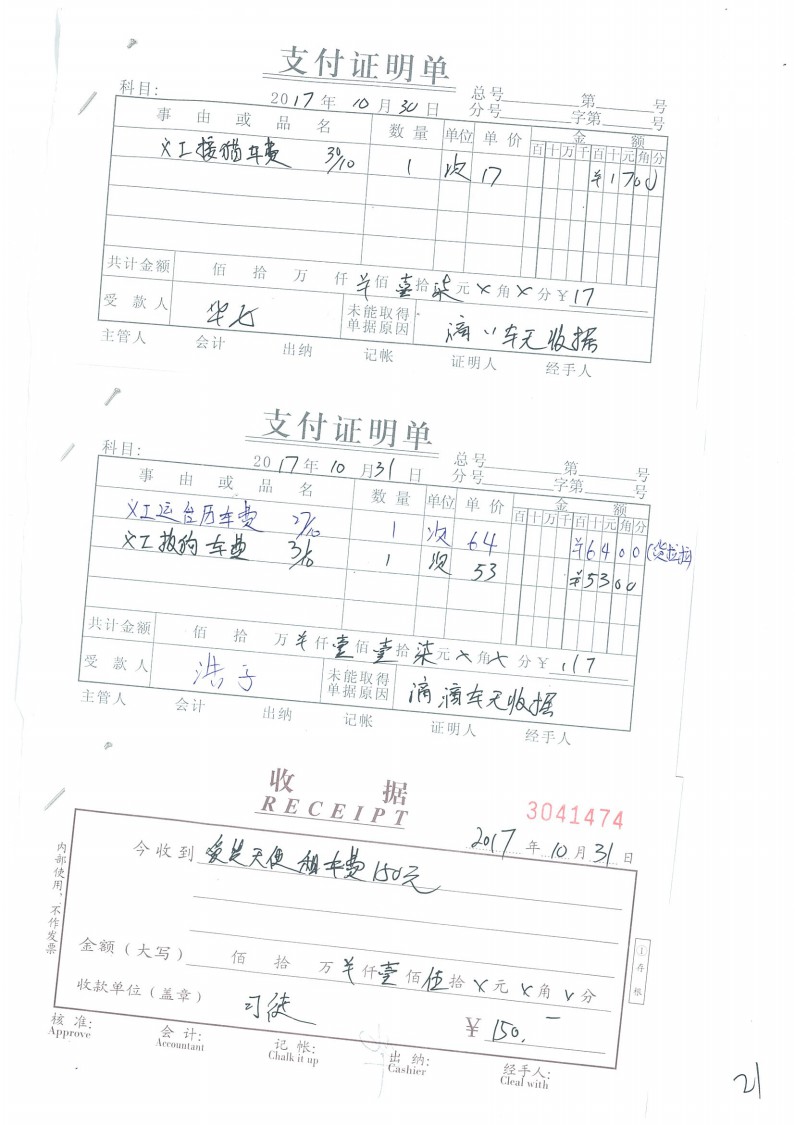 支付证明单
科目: 2017年10月30日 总号 第 号
分号 字第 号
事由或品名 数量 单位 单价 金额
百十万千百十元角分
义工接猫车费 30/10 1 次 17 ¥1700
共计金额 佰 拾 万 仟 ¥佰壹拾柒元×角×分¥17
受款人 华仔 未能取得单据原因 滴滴车无收据
主管人 会计 出纳 记帐 证明人 经手人
支付证明单
科目: 2017年10月31日 总号 第 号
分号 字第 号
事由或品名 数量 单位 单价 金额
百十万千百十元角分
义工运台历车费 27/10 1 次 64 ¥6400(货拉拉)
义工救狗车费 31/10 1 次 53 ¥5300
共计金额 佰 拾 万¥仟壹佰壹拾柒元×角×分¥117
受款人 浩子 未能取得单据原因 滴滴车无收据
主管人 会计 出纳 记帐 证明人 经手人
收据
RECEIPT
3041474
2017年10月31日
今收到 爱兽天使租车费150元
金额(大写) 佰 拾 万¥仟壹佰伍拾×元×角×分
收款单位(盖章) 司徒 ¥150.—
核准: 会计: 记帐: 出纳: 经手人:
Approve Accountant Chalk it up Cashier Cleal with
内部使用,不作发票
①存根
21